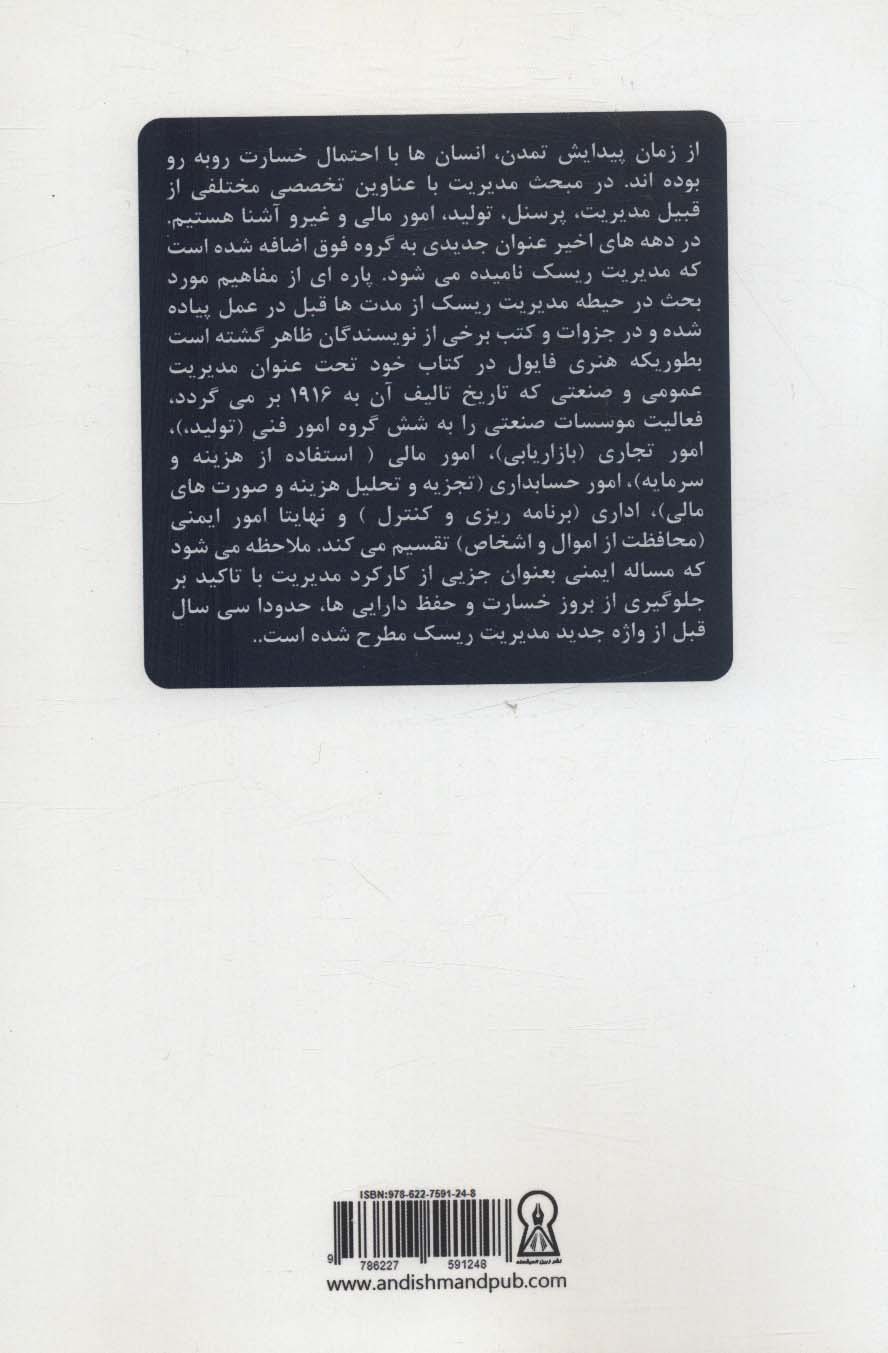 از زمان پیدایش تمدن، انسان ها با احتمال خسارت روبه رو
بوده اند. در مبحث مدیریت با عناوین تخصصی مختلفی از
قبیل مدیریت، پرسنل، تولید، امور مالی و غیرو آشنا هستیم.
در دهه های اخیر عنوان جدیدی به گروه فوق اضافه شده است
که مدیریت ریسک نامیده می شود. پاره ای از مفاهیم مورد
بحث در حیطه مدیریت ریسک از مدت ها قبل در عمل پیاده
شده و در جزوات و کتب برخی از نویسندگان ظاهر گشته است
بطوریکه هنری فایول در کتاب خود تحت عنوان مدیریت
عمومی و صنعتی که تاریخ تالیف آن به ۱۹۱۶ بر می گردد،
فعالیت موسسات صنعتی را به شش گروه امور فنی (تولید،)،
امور تجاری (بازاریابی)، امور مالی ( استفاده از هزینه و
سرمایه)، امور حسابداری (تجزیه و تحلیل هزینه و صورت های
مالی)، اداری (برنامه ریزی و کنترل ) و نهایتا امور ایمنی
(محافظت از اموال و اشخاص) تقسیم می کند. ملاحظه می شود
که مساله ایمنی بعنوان جزیی از کارکرد مدیریت با تاکید بر
جلوگیری از بروز خسارت و حفظ دارایی ها، حدودا سی سال
قبل از واژه جدید مدیریت ریسک مطرح شده است..
ISBN:978-622-7591-24-8
9 786227 591248
نشر زرین اندیشمند
www.andishmandpub.com